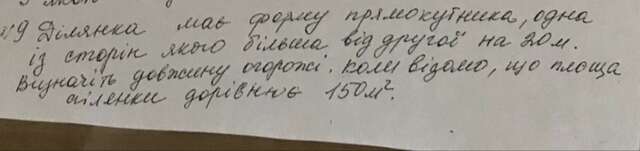 №9 Ділянка має форму прямокутника, одна
із сторін якого більша від другої на 20м.
Визначіть довжину огорожі. Коли відомо, що площа
ділянки дорівнює 150м².